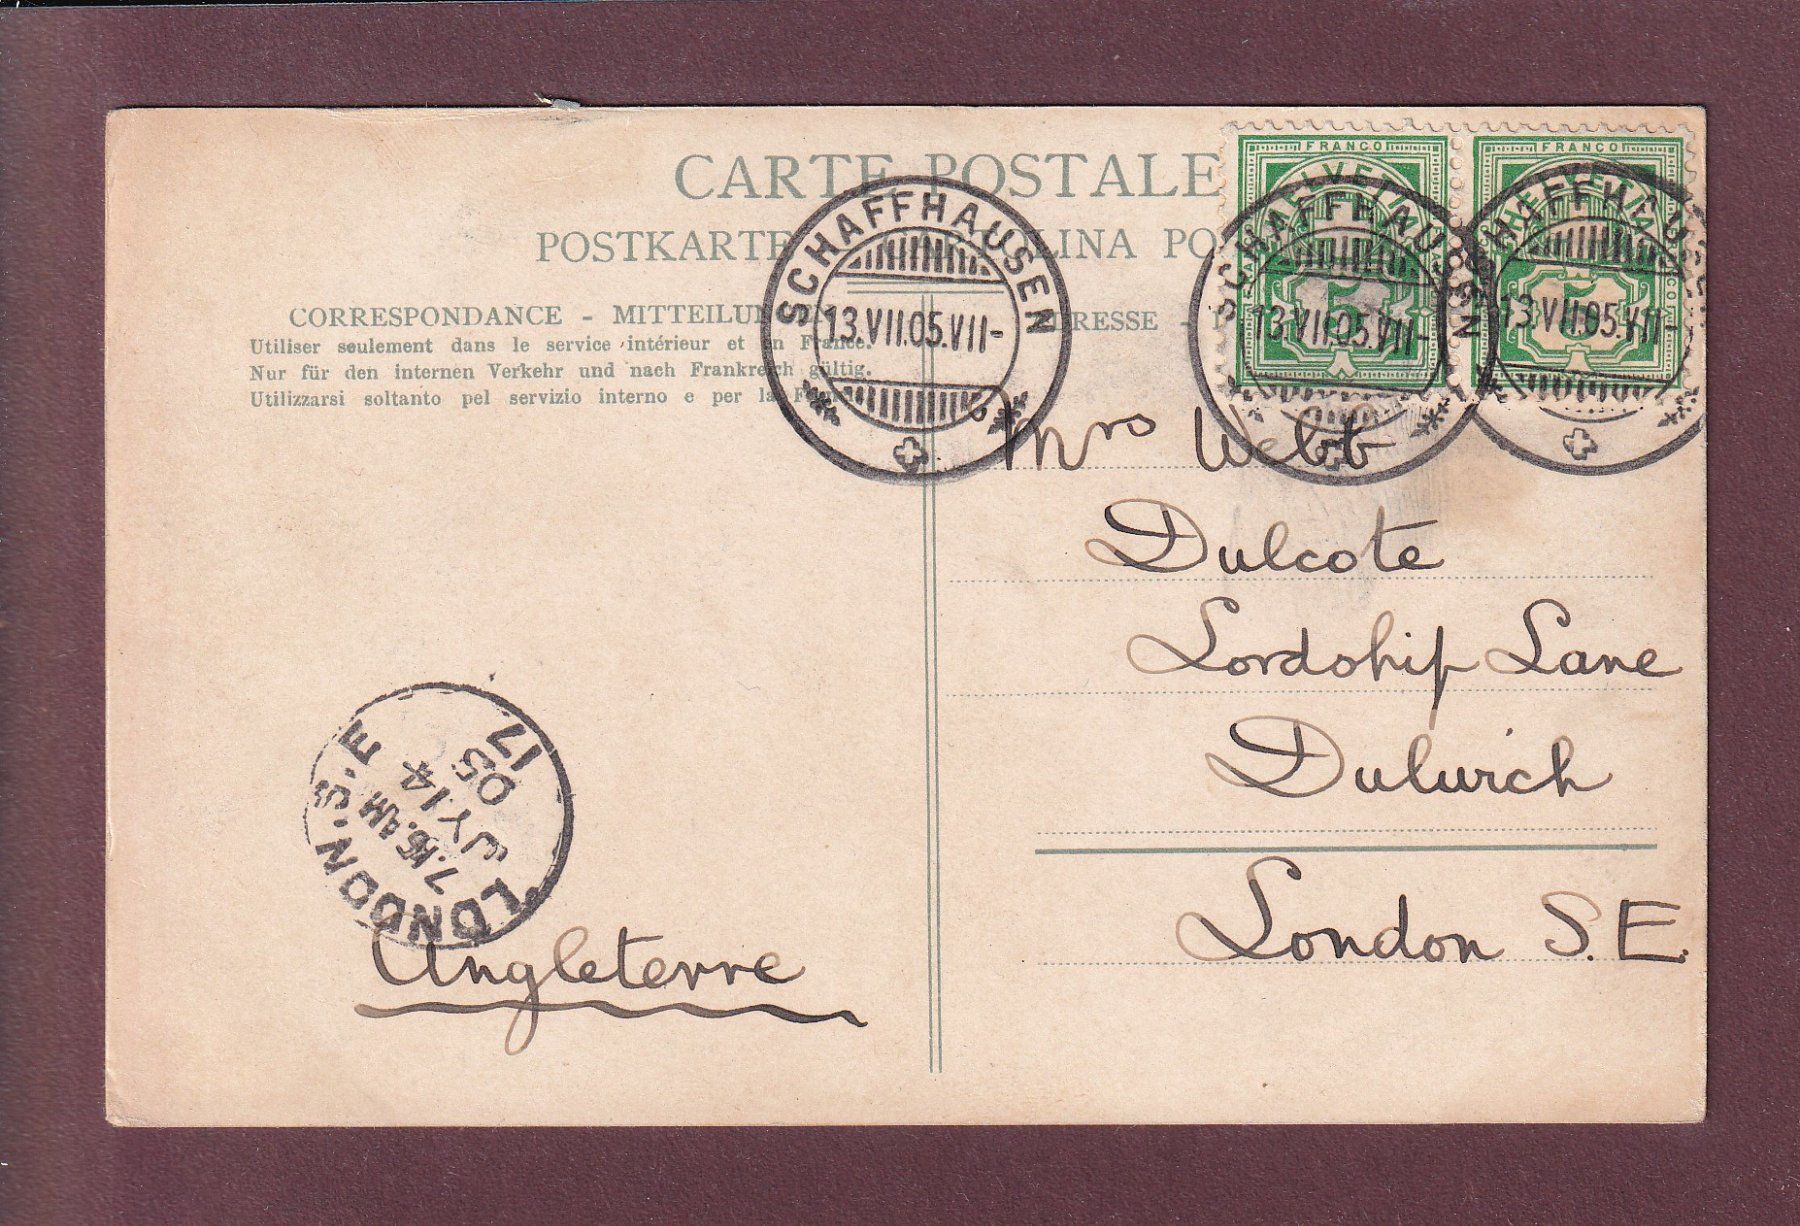 CARTE POSTALE
POSTKARTE LINA PO
CORRESPONDANCE - MITTEILUN
Utiliser seulement dans le service intérieur et en France.
Nur für den internen Verkehr und nach Frankreich gültig.
Utilizzarsi soltanto pel servizio interno e per la
RESSE -
SCHAFFHAUSEN
13.VII.05.VII-
FRANCO
HELVETIA
5
SCHAFFHAUSEN
13.VII.05.VII-
FRANCO
HELVETIA
5
SCHAFFHAUSEN
13.VII.05.VII
Mrs Webb
Dulcote
Lordship Lane
Dulwich
London S.E.
LONDON.S.E
7.15.AM
JY 14
05
17
Angleterre